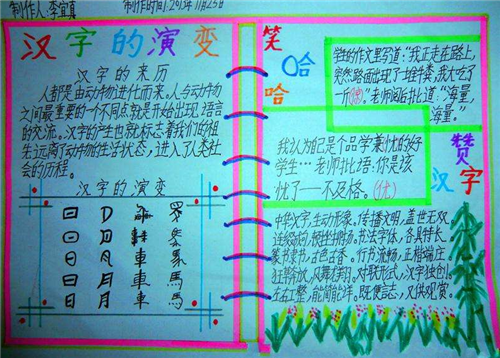 制作人：李宜真
制作时间：2013年11月25日
汉字的演变
汉字的来历
人都是由动物进化而来。人与动物
之间最重要的一个不同点就是开始出现语言
的交流。汉字的产生也就标志着我们的祖
先远离了动物的生活状态，进入了人类社
会的历程。
汉字的演变
車
馬
日
月
車
馬
笑
哈
哈
学生的作文里写道：“我正走在路上，
突然路面出现了一堆牛粪，我大吃了
一斤。”老师阅后批道：“海量，
海量。”
我认为自己是个品学兼忧的好
学生…老师批语：你是该
忧了——不及格。（优）
赞
汉字
中华文字，生动形象。传播文明，盖世无双。
书法字体，各具特长。
篆书隶书，古色古香。行书流畅，正楷端庄。
狂草奔放，凤舞龙翔。对联形式，汉字独创。
既便言志，又供观赏。